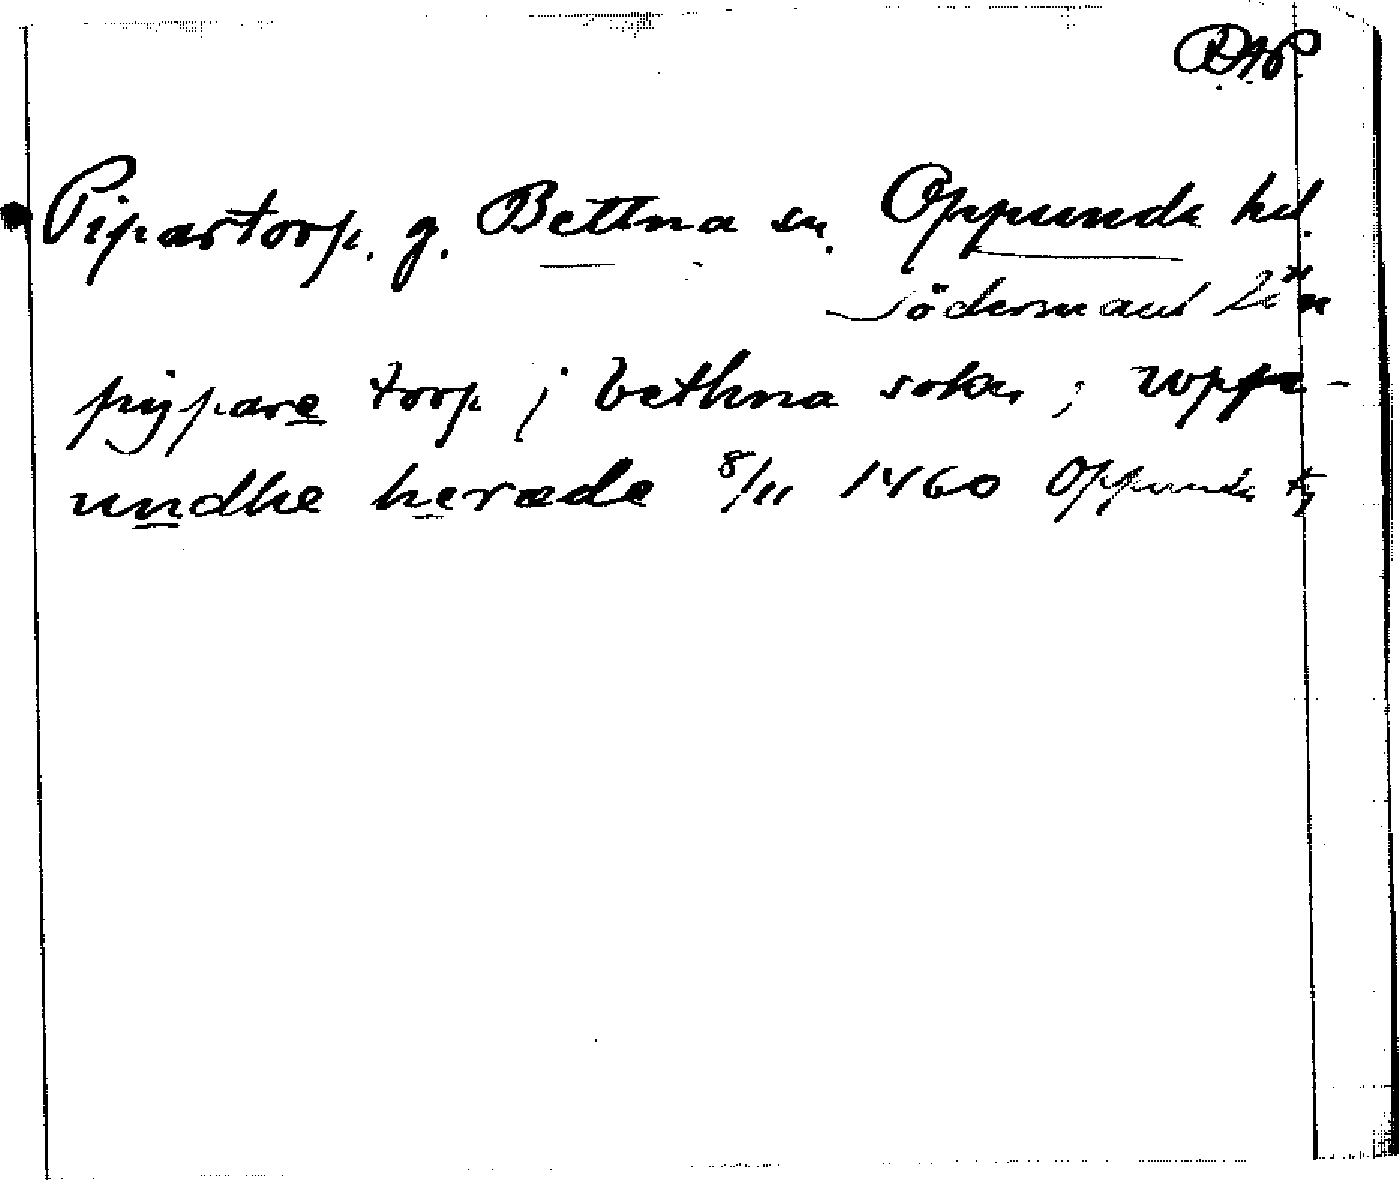 Pipartorp. g. Bettna sn. Oppunda hd.
Södermanl Län
pijpare torp j bethna sokn ; wppe-
undhe heræde 8/11 1460 Oppunda